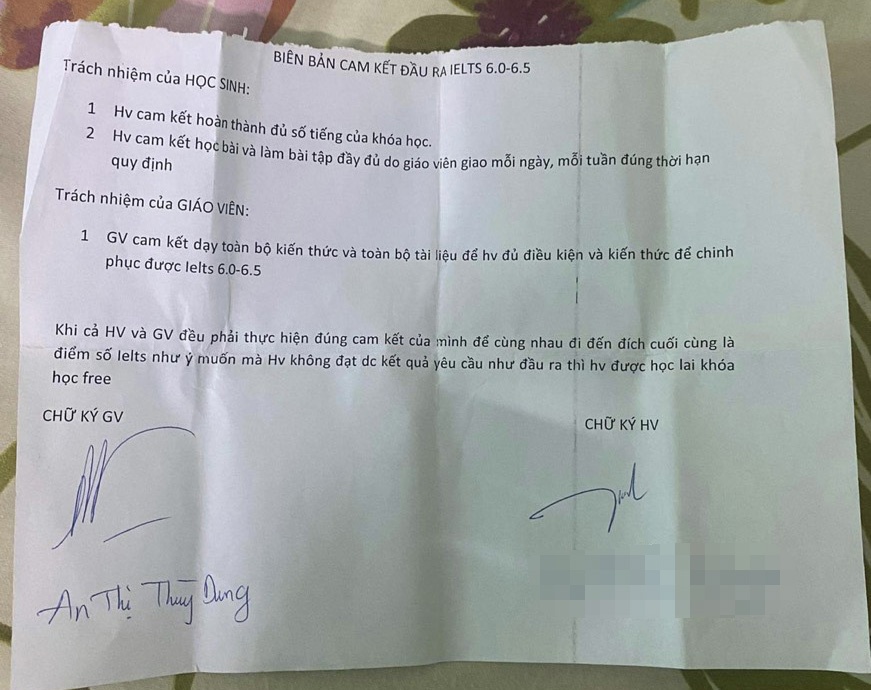 BIÊN BẢN CAM KẾT ĐẦU RA IELTS 6.0-6.5
Trách nhiệm của HỌC SINH:
1 Hv cam kết hoàn thành đủ số tiếng của khóa học.
2 Hv cam kết học bài và làm bài tập đầy đủ do giáo viên giao mỗi ngày, mỗi tuần đúng thời hạn
quy định
Trách nhiệm của GIÁO VIÊN:
1 GV cam kết dạy toàn bộ kiến thức và toàn bộ tài liệu để hv đủ điều kiện và kiến thức để chinh
phục được Ielts 6.0-6.5
Khi cả HV và GV đều phải thực hiện đúng cam kết của mình để cùng nhau đi đến đích cuối cùng là
điểm số Ielts như ý muốn mà Hv không đạt dc kết quả yêu cầu như đầu ra thì hv được học lai khóa
học free
CHỮ KÝ GV
CHỮ KÝ HV
An Thị Thuỳ Dung